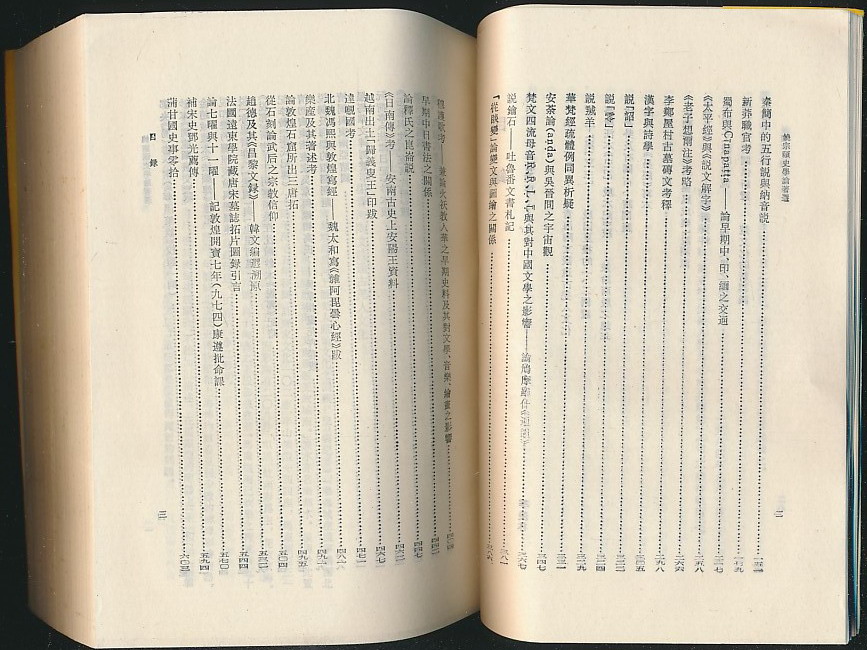 饒宗頤史學論著選
二
秦簡中的五行説與納音説……一五四
新莽職官考……一七九
蜀布與Cīnapaṭṭa——論早期中、印、緬之交通……二一七
《太平經》與《説文解字》……二五八
《老子想爾注》考略……二六六
李鄭屋村古墓磚文考釋……二九八
漢字與詩學……三〇五
説「詔」……三二二
説「零」……三二四
説䍧羊……三二九
華梵經疏體例同異析疑……三三一
安荼論(anda)與吳晉間之宇宙觀……三四七
梵文四流母音R̥, R̥̄, L̥, L̥̄與其對中國文學之影響——論鳩摩羅什《通韻》……三六七
説鍮石——吐魯番文書札記……三八一
「從睒變」論變文與圖繪之關係……三八六
穆護歌考——兼論火祆教入華之早期史料及其對文學、音樂、繪畫之影響……四〇四
早期中日書法之關係……四四二
論釋氏之崑崙説……四四七
《日南傳》考——安南古史上安陽王資料……四六二
越南出土「歸義叟王」印跋……四六七
達嚫國考……四七一
北魏馮熙與敦煌寫經——魏太和寫《雜阿毘曇心經》跋……四八一
樂產及其著述考……四九一
論敦煌石窟所出三唐拓……四九五
從石刻論武后之宗教信仰……五〇四
趙德及其《昌黎文錄》——韓文編選溯源……五三二
法國遠東學院藏唐宋墓誌拓片圖錄引言……五四四
論七曜與十一曜——記敦煌開寶七年(九七四)康遵批命課……五七〇
補宋史鄧光薦傳……五九四
蒲甘國史事零拾……六〇三
目　錄
三